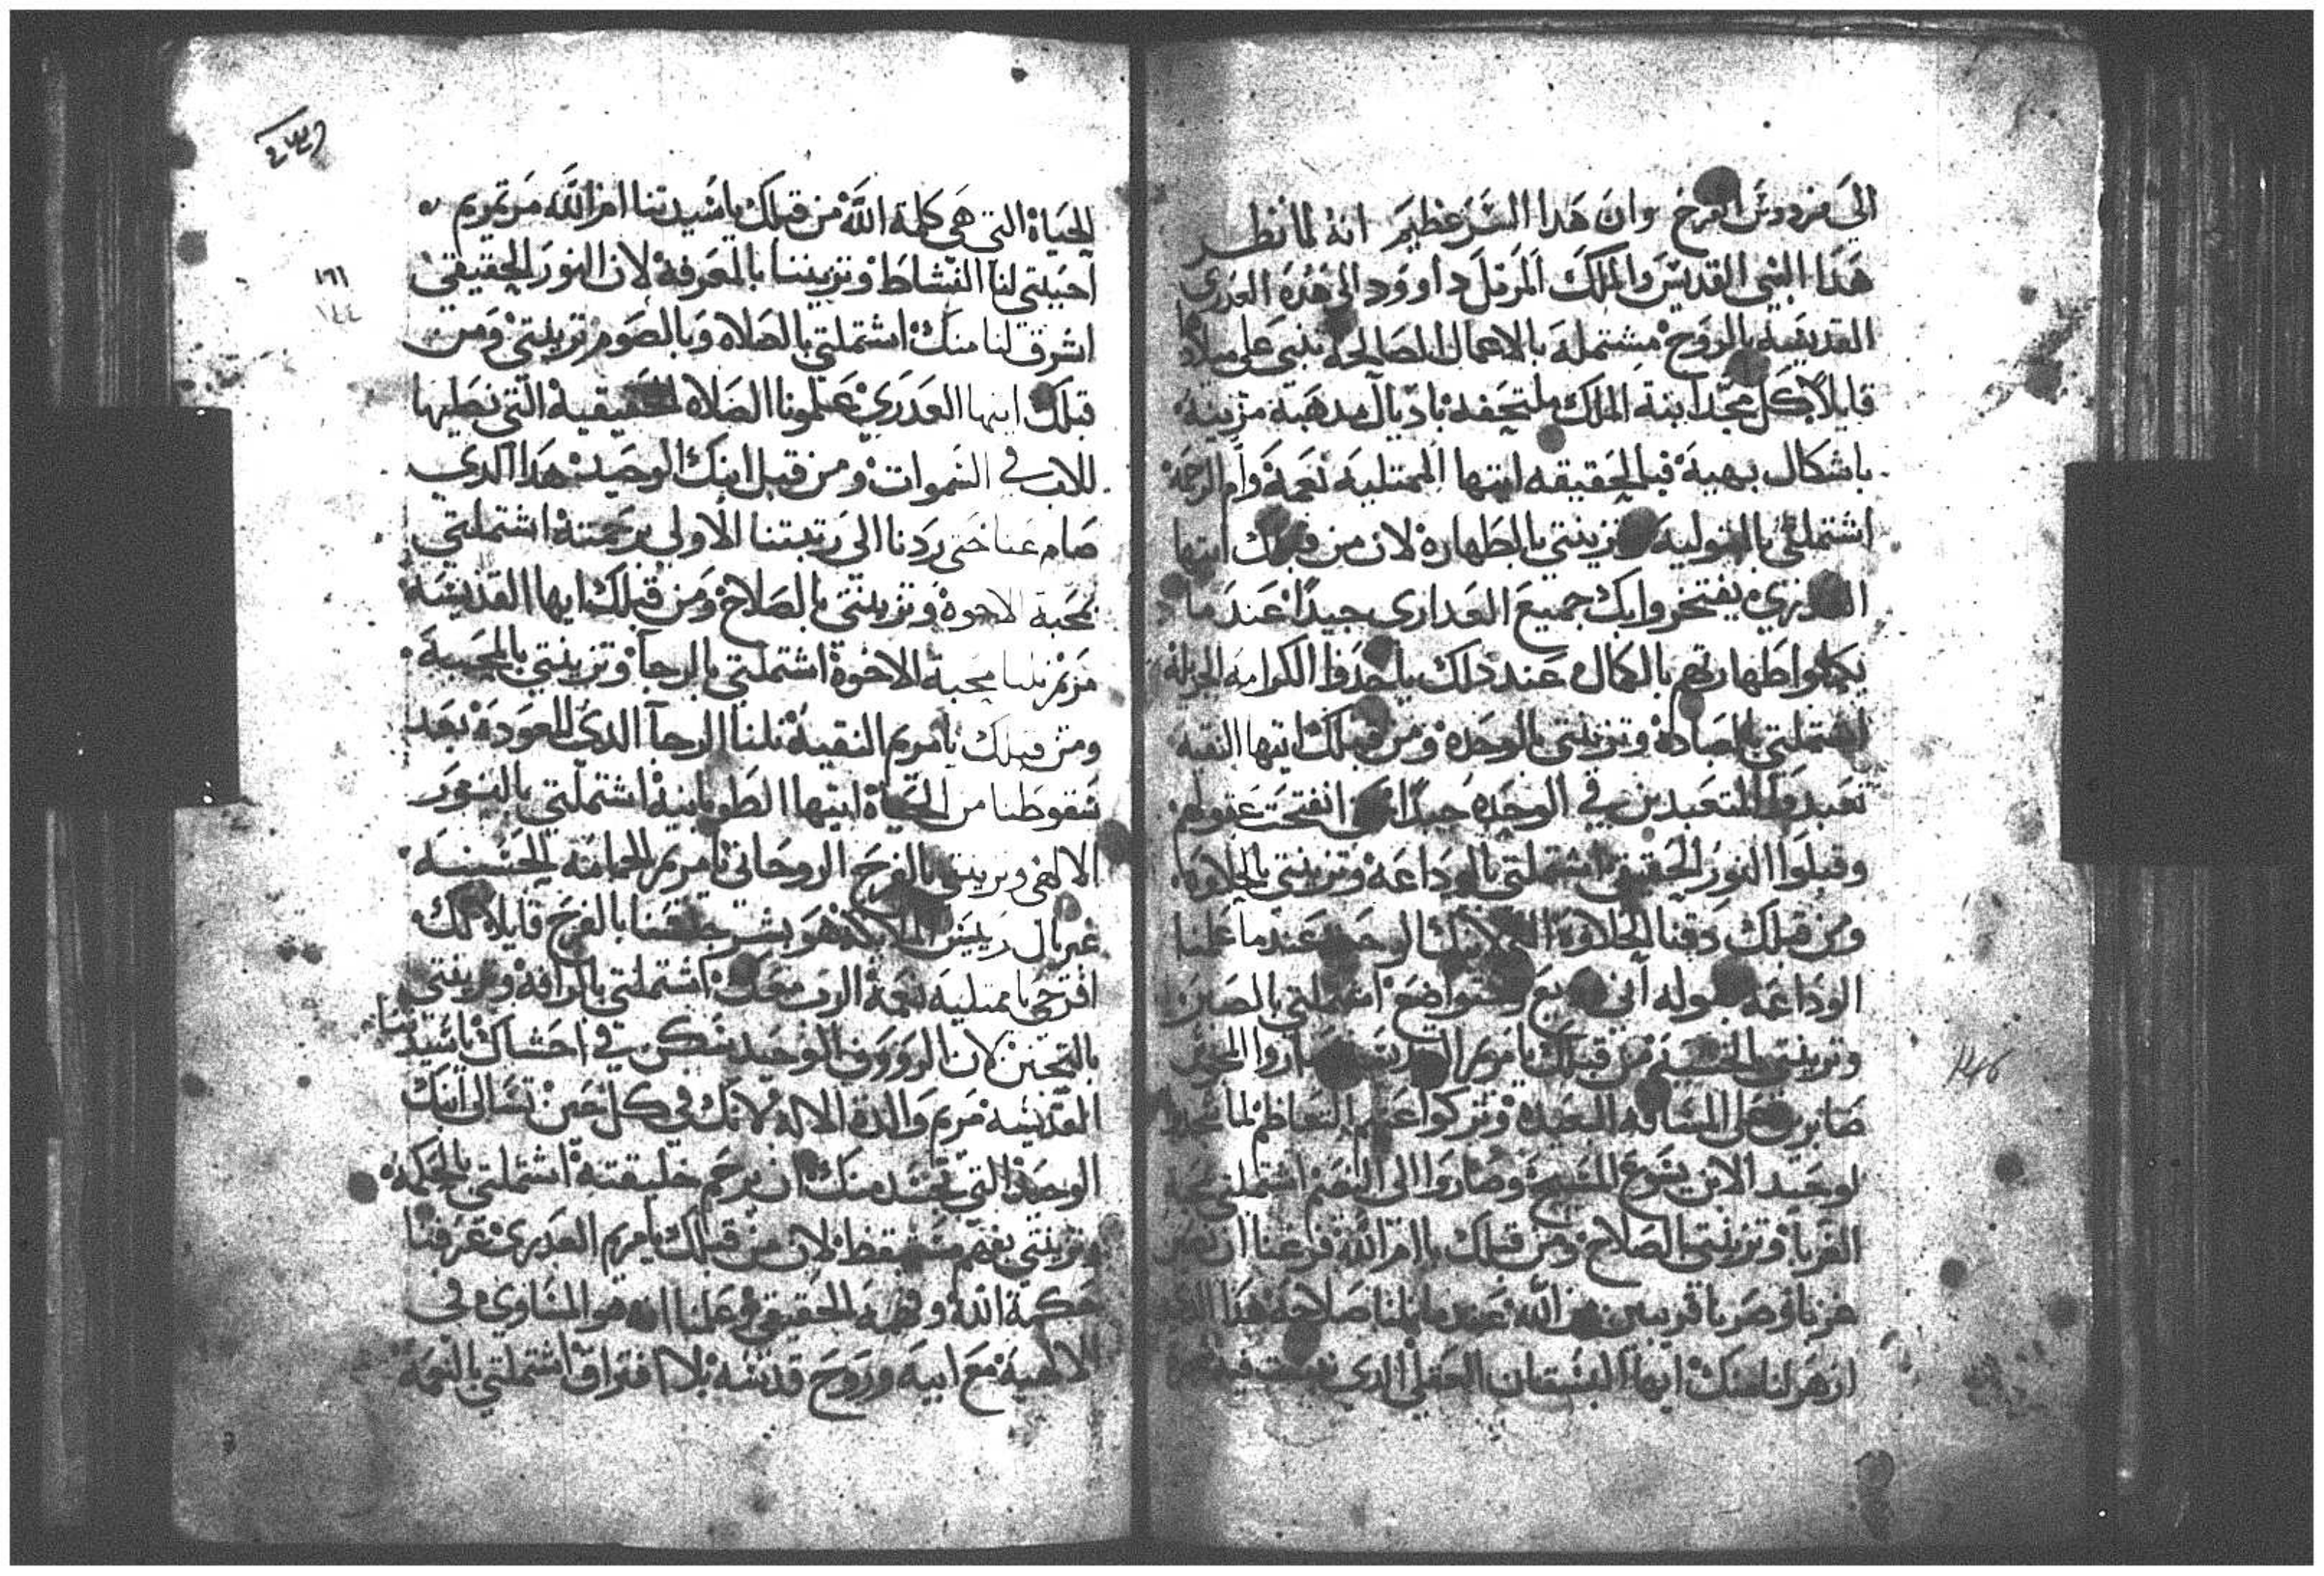 الي فردوس الفرح وان هدا السر عظيم انه لما نظر
هدا النبي القديس والملك المرتل داوود الي هده العدري
القديسه بالروح مشتمله بالاعمال الصالحه تنبي علي ميلاد
قايلا كل مجد ابنة الملك ملتحفه باديال مدهبة مزينه
باشكال بهية فبالحقيقه ايتها الممتليه نعمة وام الرحمة
اشتملتي بالبتوليه وتزينتي بالطهارة لان من قبلك ايتها
العدري يفتخروا بك جميع العداري جيدا عند ما
يكملوا طهارتهم بالكمال عند دلك ياخدوا الكرامه الجزيله
اشتملتي بالعبادة وتزينتي بالوحدة ومن قبلك ايتها النقيه
تعبدوا المتعبدين في الوحده جيدا انفتحت عقولهم
وقبلوا النور الحقيقي اشتملتي بالوداعه وتزينتي بالحلاوة
ومن قبلك دقنا الحلاوة التي لابنك الوحيد عند ما علمنا
الوداعه بقوله اني وديع ومتواضع اشتملتي بالصبر
وتزينتي من قبلك يا مريم القديسه صاروا
صابرين علي البعيده وتركوا عنهم التعاظم لما
لوحيد الابن يسوع المسيح وصاروا الي النعيم اشتملتي
الغربا وتزينتي بالصلاح ومن قبلك يا ام الله فزعنا ان
غربا وصرنا قريبين من الله عند ما نلنا صلاحه هدا
ازهر لنا منك ايها البستان العقلي الدي فيه
الحياة التي هي كلمة الله من قبلك يا سيدتنا ام الله مرتمريم
احبيتي لنا النشاط وتزيننا بالمعرفة لان النور الحقيقي
اشرق لنا منك اشتملتي بالصلاه وبالصوم تزينتي ومن
قبلك ايتها العدري علمونا الصلاه الحقيقية التي نصليها
للاب في السموات ومن قبل ابنك الوحيد هدا الدي
صام عنا حتي ردنا الي رتبتنا الاولي برحمته اشتملتي
بمحبة الاخوة وتزينتي بالصلاح ومن قبلك ايها القديسه
مريم نلنا محبة الاخوة اشتملتي بالرجا وتزينتي بالمحبة
ومن قبلك يا مريم النقية نلنا الرجا الدي للعودة بعد
سقوطنا من الحياة ايتها الطوبانية اشتملتي بالنور
الالهي وتزينتي بالفرح الروحاني يا مريم الحمامه الحسنه
غبريال رييس الملايكة هو بشر جنسنا بالفرح قايلا لك
افرحي يا ممتليه نعمة الرب معك اشتملتي بالرافة وتزينتي
بالتحنن لان الرووف الوحيد سكن في احشاك يا سيدتنا
القديسه مريم والدة الاله لانك في كل حين تسالي ابنك
الوحيد التي تجسد منك ان يرحم خليقته اشتملتي بالحكمة
وتزينتي بفهم مستيقظ لان من قبلك يا مريم العدري عرفنا
حكمة الله وفهمه الحقيقي وعلمنا انه هو المساوي في
الالهية مع ابيه وروح قدسه بلا افتراق اشتملتي بالنعمة
١٦١
١٤٤
146